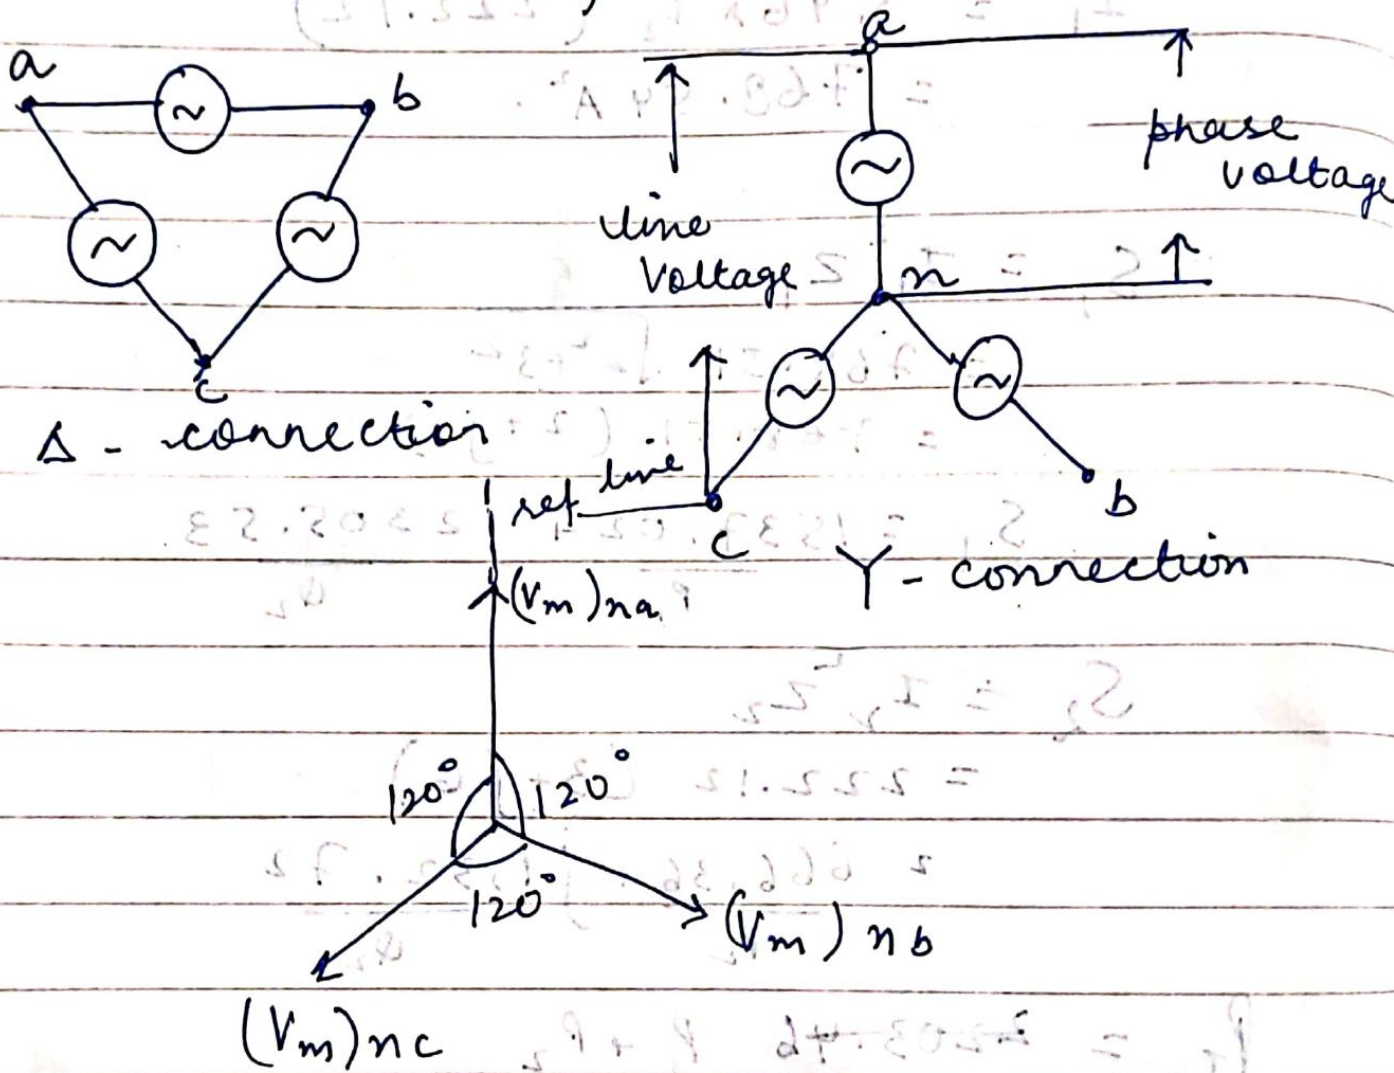 a
b
c
Δ - connection
a
phase
voltage
line
Voltage
n
ref line
c
b
Y - connection
(Vm)na
120°
120°
120°
(Vm)nb
(Vm)nc